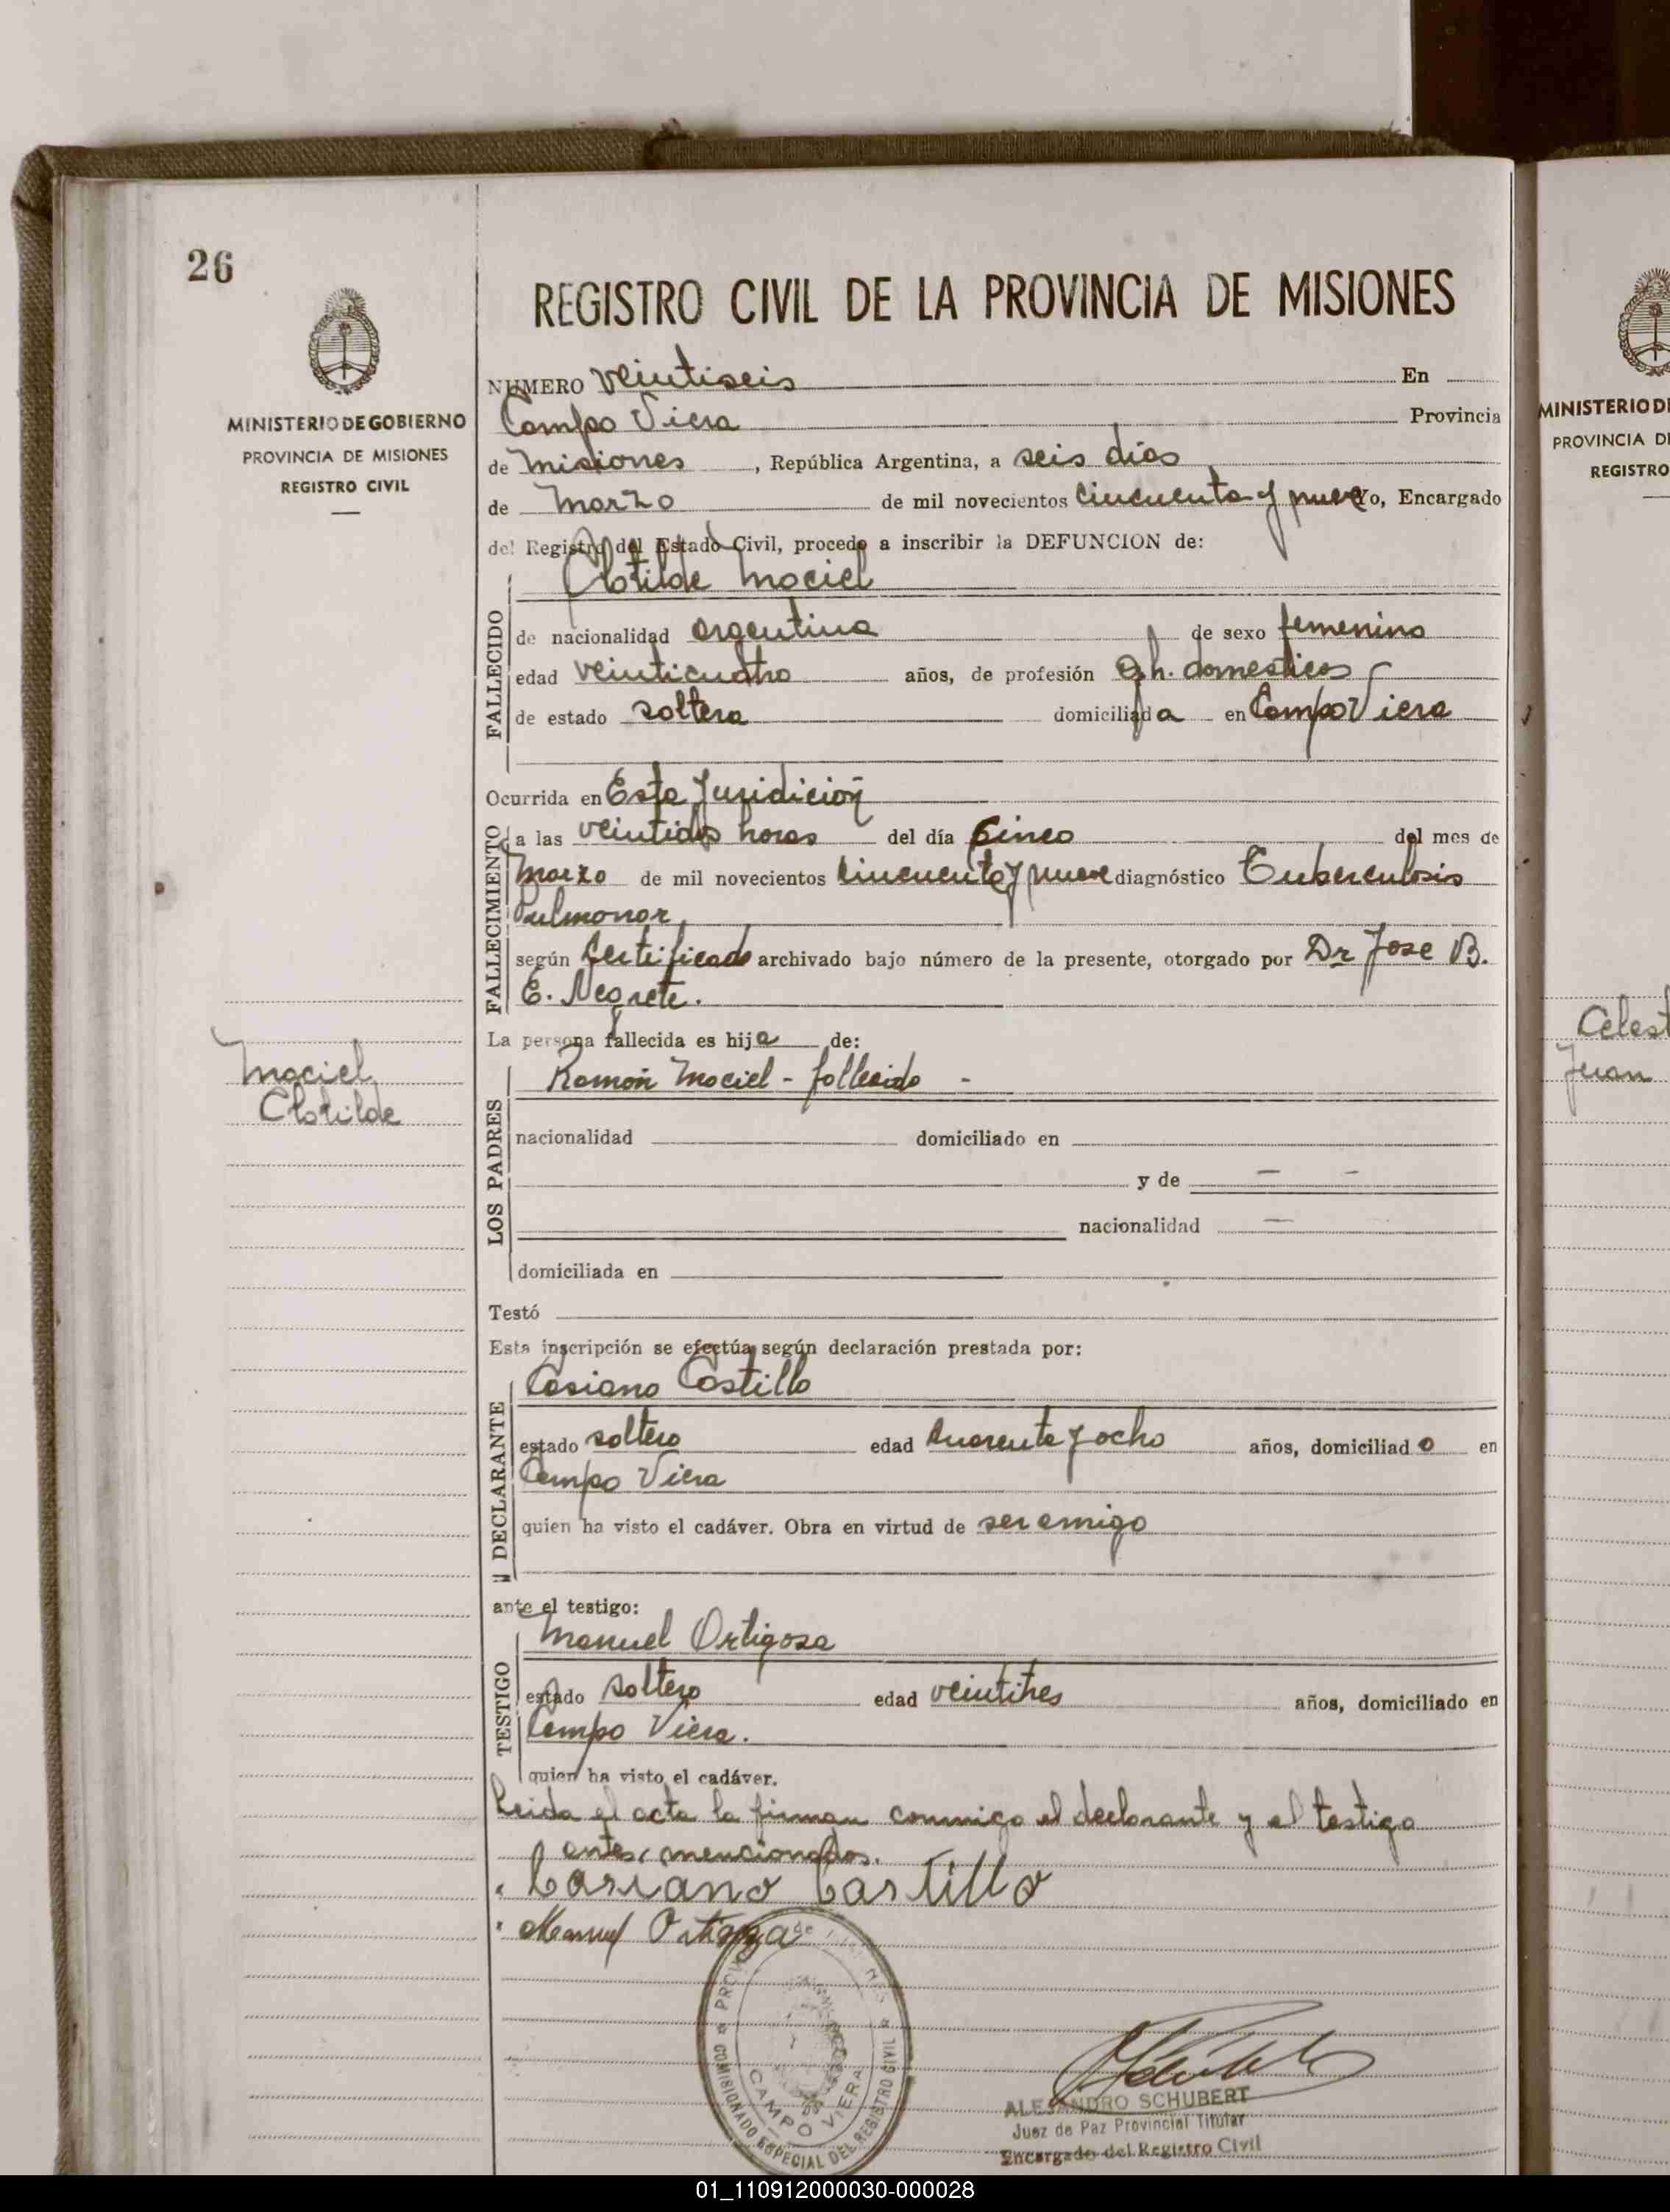 26
REGISTRO CIVIL DE LA PROVINCIA DE MISIONES
MINISTERIO DE GOBIERNO
PROVINCIA DE MISIONES
REGISTRO CIVIL
NUMERO veintiseis En
Campo Viera Provincia
de Misiones, República Argentina, a seis dias
de Marzo de mil novecientos cincuenta y nueve Yo, Encargado
del Registro del Estado Civil, procedo a inscribir la DEFUNCION de:
Clotilde Maciel
FALLECIDO
de nacionalidad argentina de sexo femenino
edad veinticuatro años, de profesión Q.h. domesticos
de estado soltera domiciliada en Campo Viera
Ocurrida en Esta Juridición
FALLECIMIENTO
a las veintidos horas del día cinco del mes de
Marzo de mil novecientos cincuenta y nueve diagnóstico Tuberculosis
Pulmonar
según Certificado archivado bajo número de la presente, otorgado por Dr Jose B.
E. Negrete.
La persona fallecida es hija de:
Maciel
Clotilde
LOS PADRES
Ramón Maciel - fallecido -
nacionalidad domiciliado en
y de — -
nacionalidad —
domiciliada en
Testó
Esta inscripción se efectúa según declaración prestada por:
DECLARANTE
Casiano Castillo
estado soltero edad cuarenta y ocho años, domiciliado en
Campo Viera
quien ha visto el cadáver. Obra en virtud de ser amigo
ante el testigo:
TESTIGO
Manuel Ortigoza
estado soltero edad veintitres años, domiciliado en
Campo Viera.
quien ha visto el cadáver.
Leida el acta la firman conmigo el declarante y el testigo
antes mencionados.
Casiano Castillo
Manuel Ortigoza
COMISIONADO ESPECIAL DEL REGISTRO CIVIL
CAMPO VIERA
ALEJANDRO SCHUBERT
Juez de Paz Provincial Titular
Encargado del Registro Civil
MINISTERIO D
PROVINCIA D
REGISTRO
Celest
Juan
01_110912000030-000028